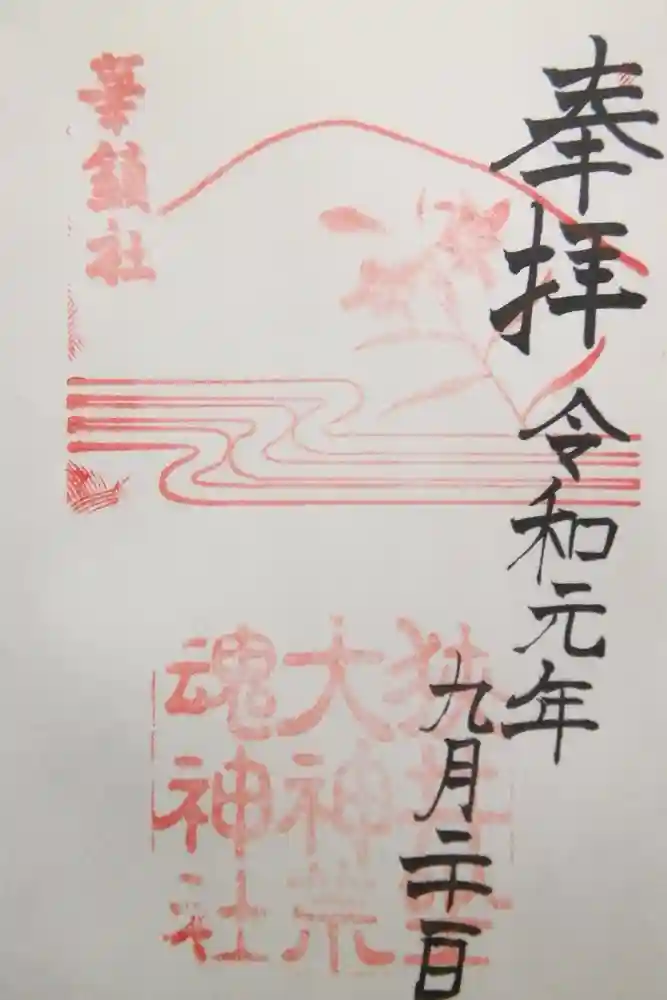 奉拝 令和元年
九月二十一日
狭井坐
大神荒
魂神社
華鎮社